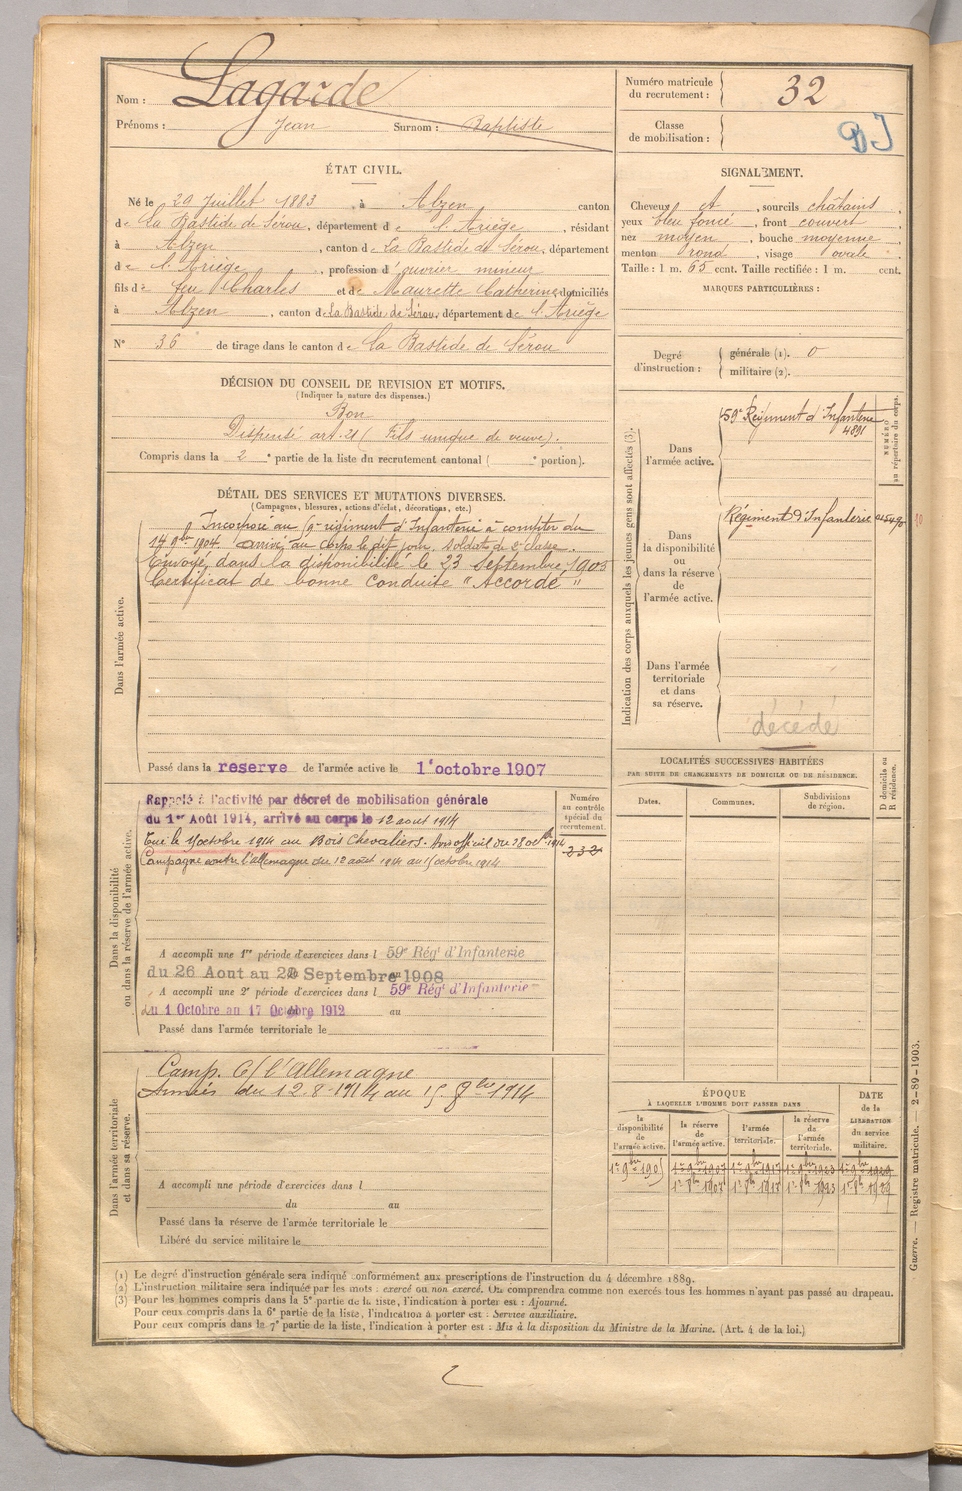 Nom : Lagarde
Prénoms : Jean Surnom : Baptiste
Numéro matricule du recrutement : 32
Classe de mobilisation :
ÉTAT CIVIL.
Né le 29 Juillet 1883 à Alzen canton
de La Bastide de Sérou, département de l'Ariège, résidant
à Alzen, canton de La Bastide de Sérou, département
de l'Ariège, profession d'ouvrier mineur
fils de feu Charles et de Maurette Catherine, domiciliés
à Alzen, canton de La Bastide de Sérou, département de l'Ariège
N° 36 de tirage dans le canton de La Bastide de Sérou
SIGNALEMENT.
Cheveux et, sourcils châtains,
yeux bleu foncé, front couvert
nez moyen, bouche moyenne
menton rond, visage ovale
Taille : 1 m. 65 cent. Taille rectifiée : 1 m. cent.
MARQUES PARTICULIÈRES :
Degré d'instruction : générale (1). 0
militaire (2).
DÉCISION DU CONSEIL DE REVISION ET MOTIFS.
(Indiquer la nature des dispenses.)
Bon
Dispensé art. 21 (Fils unique de veuve).
Compris dans la 2e partie de la liste du recrutement cantonal ( e portion).
DÉTAIL DES SERVICES ET MUTATIONS DIVERSES.
(Campagnes, blessures, actions d'éclat, décorations, etc.)
Dans l'armée active.
Incorporé au régiment d'Infanterie à compter du
14 9bre 1904. arrivé au corps le dit jour, soldat de 2e classe.
Envoyé dans la disponibilité le 23 septembre 1905
Certificat de bonne conduite "Accordé"
Passé dans la reserve de l'armée active le 1er octobre 1907
Indication des corps auxquels les jeunes gens sont affectés (3).
NUMÉRO au répertoire du corps.
Dans l'armée active.
59e Régiment d'Infanterie
4891
Dans la disponibilité ou dans la réserve de l'armée active.
Régiment d'Infanterie
Dans l'armée territoriale et dans sa réserve.
décédé
Dans la disponibilité ou dans la réserve de l'armée active.
Rappelé à l'activité par décret de mobilisation générale
du 1er Août 1914, arrivé au corps le 12 aout 1914
Tué le octobre 1914 au Bois Chevaliers. Avis officiel du 28 1914
Campagne contre l'allemagne du 12 août 1914 au octobre 1914
Numéro au contrôle spécial du recrutement.
232
A accompli une 1re période d'exercices dans l 59e Régt d'Infanterie
du 26 Aout au Septembre 1908
A accompli une 2e période d'exercices dans l 59e Régt d'Infanterie
du 1 Octobre au 17 Octobre 1912 au
Passé dans l'armée territoriale le
LOCALITÉS SUCCESSIVES HABITÉES
PAR SUITE DE CHANGEMENTS DE DOMICILE OU DE RÉSIDENCE.
D domicile ou R résidence.
Dates. Communes. Subdivisions de région.
Dans l'armée territoriale et dans sa réserve.
Camp. C/ l'Allemagne
Armées du 12-8-1914 au 1914
A accompli une période d'exercices dans l
du au
Passé dans la réserve de l'armée territoriale le
Libéré du service militaire le
ÉPOQUE
À LAQUELLE L'HOMME DOIT PASSER DANS
la disponibilité de l'armée active.
la réserve de l'armée active.
l'armée territoriale.
la réserve de l'armée territoriale.
DATE de la LIBÉRATION du service militaire.
1er 9bre 1905 1er 9bre 1907 1er 9bre 1917 1er 9bre 1923 1er 9bre 1929
1er 8bre 1907 1er 8bre 1917 1er 8bre 1923 1er 8bre 1929
Guerre. — Registre matricule. — 2-89-1903.
(1) Le degré d'instruction générale sera indiqué conformément aux prescriptions de l'instruction du 4 décembre 1889.
(2) L'instruction militaire sera indiquée par les mots : exercé ou non exercé. On comprendra comme non exercés tous les hommes n'ayant pas passé au drapeau.
(3) Pour les hommes compris dans la 5e partie de la liste, l'indication à porter est : Ajourné.
Pour ceux compris dans la 6e partie de la liste, l'indication à porter est : Service auxiliaire.
Pour ceux compris dans la 7e partie de la liste, l'indication à porter est : Mis à la disposition du Ministre de la Marine. (Art. 4 de la loi.)